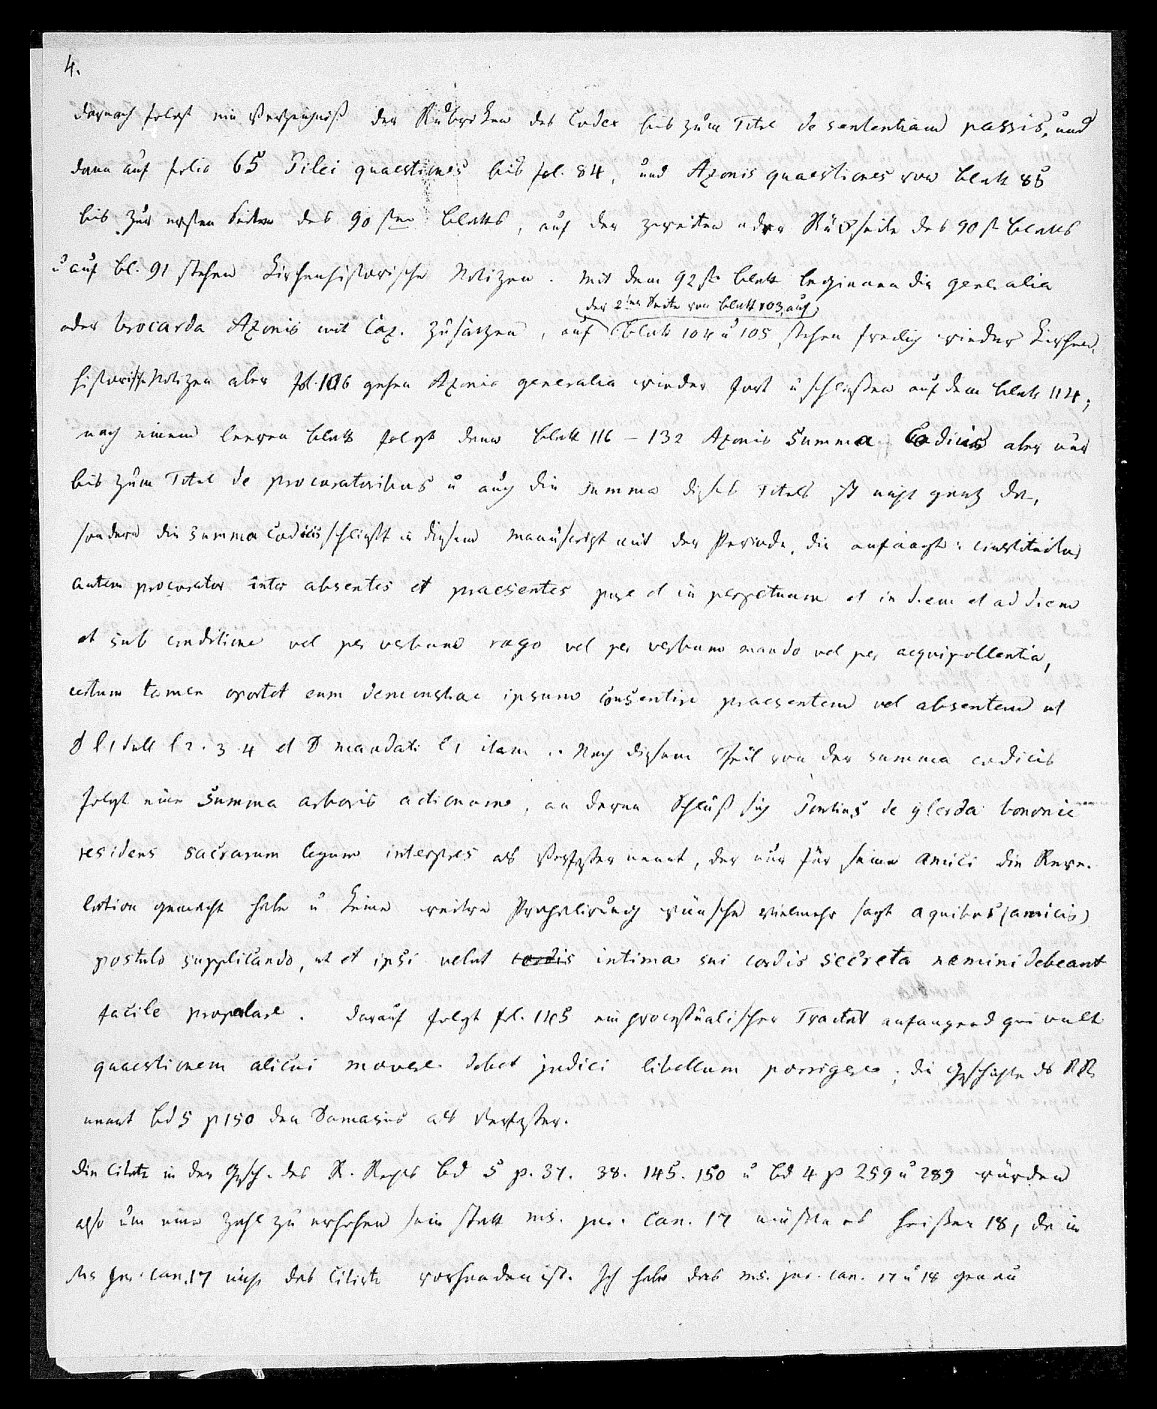 4.
darnach folgt ein Verzeichniß der Rubriken des Codex bis zum Titel de sententiam passis, und
dann auf folio 65 Pilei quaestiones bis fol. 84, und Azonis quaestiones von Blatt 85
bis zur ersten Seite des 90sten Blatts, auf der zweiten oder Rückseite des 90st Blatts
u auf Bl. 91 stehen kirchenhistorische Notizen. Mit dem 92st Blatt beginnen die generalia
der 2ten Seite von Blatt 103, auf
oder brocarda Azonis mit Cac. Zusätzen, auf Blatt 104 u 105 stehen freilich wieder kirchen
historische Notizen aber fol. 106 gehen Azonis generalia wieder fort u schließen auf dem Blatt 114;
nach einem leeren Blatt folgt dann Blatt 116 – 132 Azonis Summa Codicis aber nur
bis zum Titel de procuratoribus u auch die Summa dieses Titels ist nicht ganz da,
sondern die Summa Codicis schließt in diesem Manuscript mit der Periode, die anfängt: constituitur
autem procurator inter absentes et praesentes pure et in perpetuum et in diem et ad diem
et sub conditione vel per verbum rogo vel per verbum mando vel per aequipollentia,
certum tamen oportet eum demonstrare ipsum consentire praesentem vel absentem ut
D l 1 l 2. 3 4 et D mandati l 1 item .. Nach diesem Theil von der summa codicis
folgt eine Summa arboris actionum, an deren Schluß sich Pontius de ylerda bononie
residens sacrarum legum interpres als Verfasser nennt, der nur für seine amici die
gemacht habe u keine weitere wünsche vielmehr sagt a quibus (amicis)
postulo supplicando, ut et ipsi velut intima sui cordis secreta nemini debeant
facile propalare. Darauf folgt fol. 145 ein processualischer Tractat anfangend qui vult
quaestionem alicui movere debet judici libellum porrigere; die Geschichte des RR
nennt Bd 5 p 150 den Damasus als Verfasser.
Die Citate in der Gesch. des R. Rechts Bd 5 p. 37. 38. 145. 150 u Bd 4 p 259 u 289 würden
also um eine Zahl zu erhöhen sein statt ms. jur. can. 17 müßte es heißen 18, da in
Ms jur. can. 17 nichts des Citirte vorhanden ist. Ich habe das ms. jur. can. 17 u 18 genau